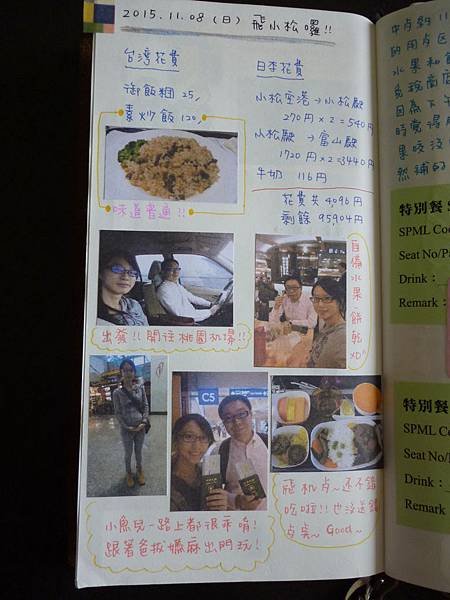 2015.11.08 (日) 飛小松囉!!
台湾花費
御飯糰 25,
素炒飯 120,
味道普通!!
日本花費
小松空港→小松駅
270円×2=540円
小松駅 → 富山駅
1720円×2=3440円
牛奶 116円
花費共 4,096円
剩餘 95,904円
出發!! 開往桃園机場!!
自備水果、餅乾XD
C5
小魚兒一路上都很乖唷!
跟著爸拔媽麻出門玩!
飛机点~还不錯
吃啦!! 也沒送錯
点矣~ Good~
中点約11
的用点区
水果和
因為下午
時覺得
果咬沒
然補的
特別餐 S
SPML Co
Seat No/P
Drink:
Remark:
特別餐
SPML Co
Seat No/
Drink:
Remark